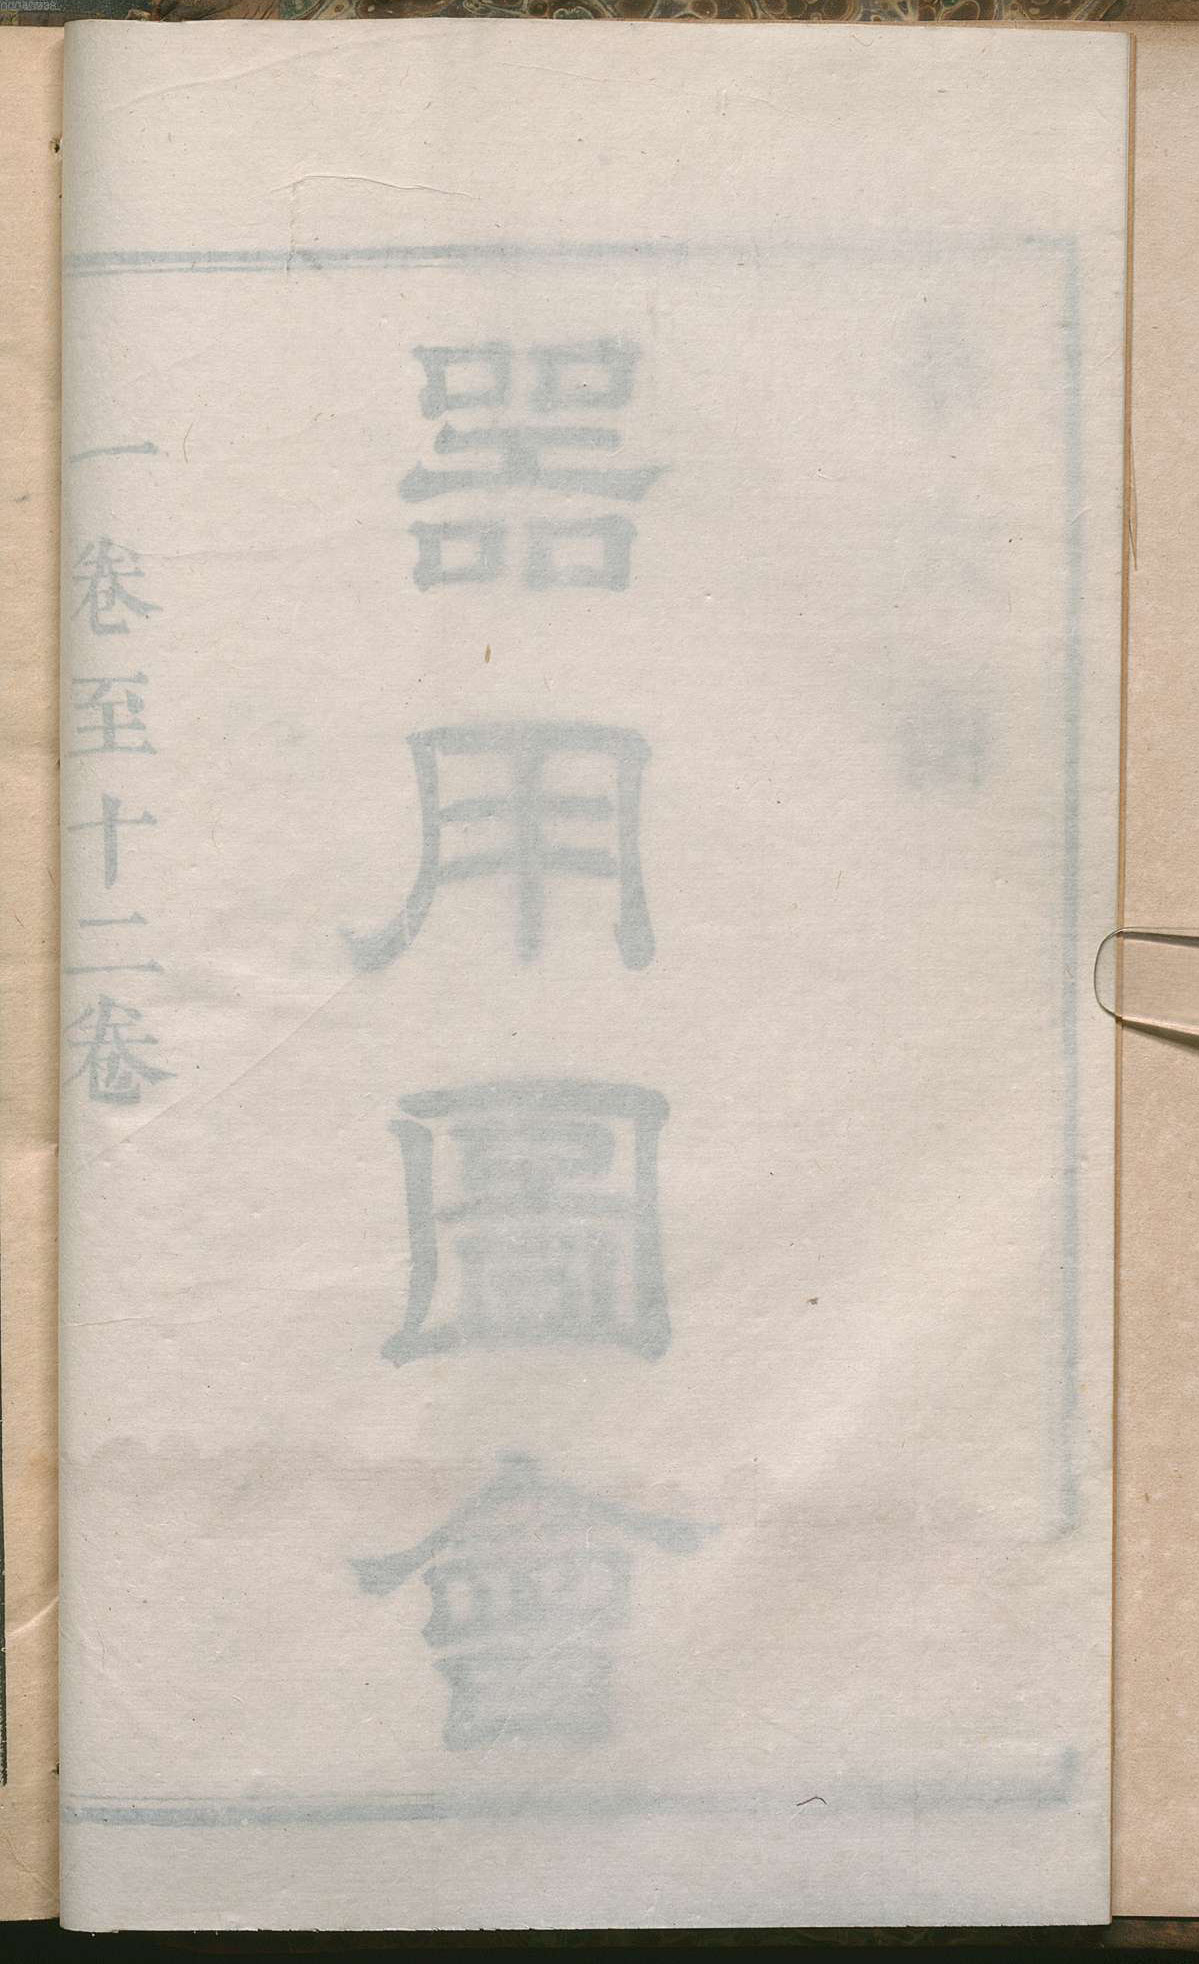 器用圖會
一卷至十二卷